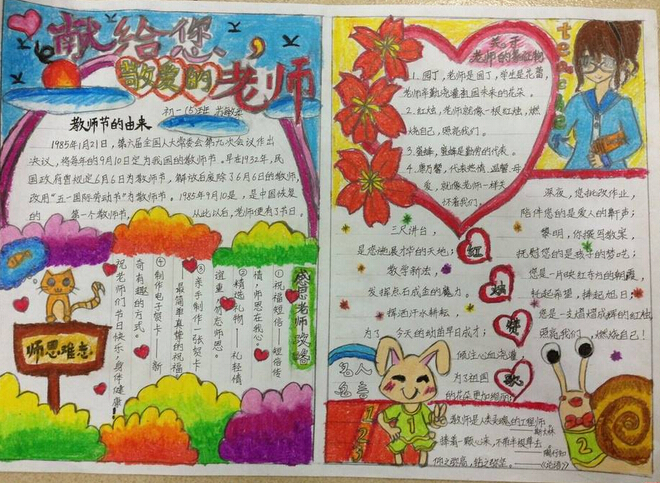 献给您，
敬爱的老师
初一(5)班
教师节的由来
1985年1月21日，第六届全国人大常委会第九次会议作出
决议，将每年的9月10日定为我国的教师节。早在1932年，民
国政府曾规定6月6日为教师节，解放后废除了6月6日的教师节，
改用“五一国际劳动节”为教师节。1985年9月10是，是中国恢复
的 第一个教师节， 从此以后，老师便有了节日。
感恩老师
①祝福短信——短信传
情，师恩在我心。
②精选礼物——礼轻情
谊重，感恩师恩。
③亲手制作一张贺卡——
最简单真挚的祝福
④制作电子贺卡——新
奇有趣的方式。
祝老师们节日快乐，身体健康！
师恩难忘
关于
老师的象征物
1.园丁，老师是园丁，学生是花蕾，
老师辛勤浇灌祖国未来的花朵。
2.红烛，老师就像一根红烛，燃
烧自己，照亮我们。
3.蜜蜂，蜜蜂是勤劳的代表。
4.康乃馨，代表热情、温馨、母
爱，就像老师一样关
怀着我们。
teacher
三尺讲台，
是您施展才华的天地；
教学新法，
发挥点石成金的魔力。
挥洒汗水耕耘，
为了 今天的幼苗早日成才；
倾注心血浇灌，
为了祖国
的花朵更加绚丽；
红
烛
赞
歌
深夜，您批改作业，
陪伴您的是爱人的鼾声；
黎明，你撰写教案
抚慰您的是孩子的梦呓；
您是一片映红春约的朝霞
托起希望，捧起旭日；
您是一支熠熠成辉的红烛
照亮我们，燃烧自己！
名人
名言
1
2
3
教师是人类灵魂的工程师
——斯大林
捧着一颗心来，不带半根草去
——陶行知
仰之弥高，钻之弥坚。——《论语》
1
2